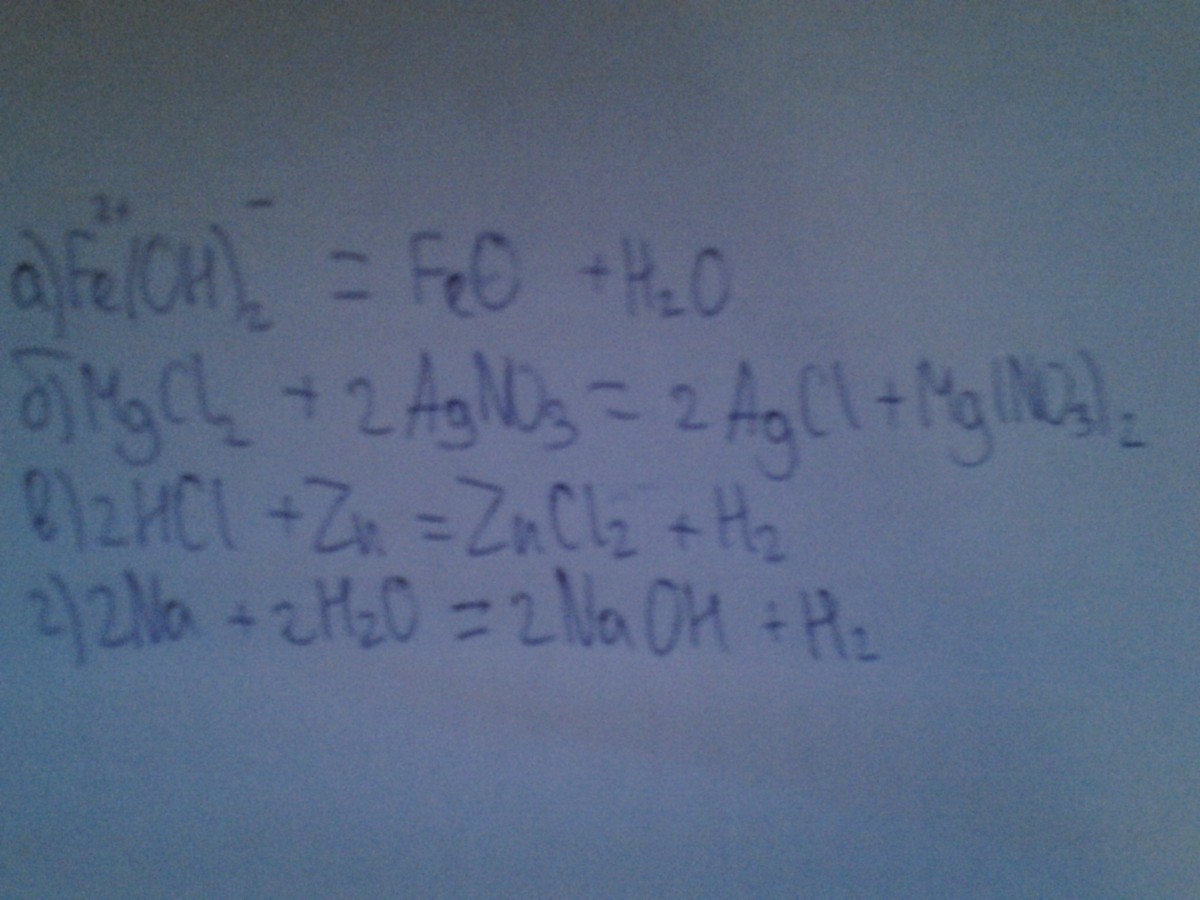 а) Fe²⁺(OH)₂⁻ = FeO + H₂O
б) MgCl₂ + 2AgNO₃ = 2AgCl + Mg(NO₃)₂
в) 2HCl + Zn = ZnCl₂ + H₂
г) 2Na + 2H₂O = 2NaOH + H₂